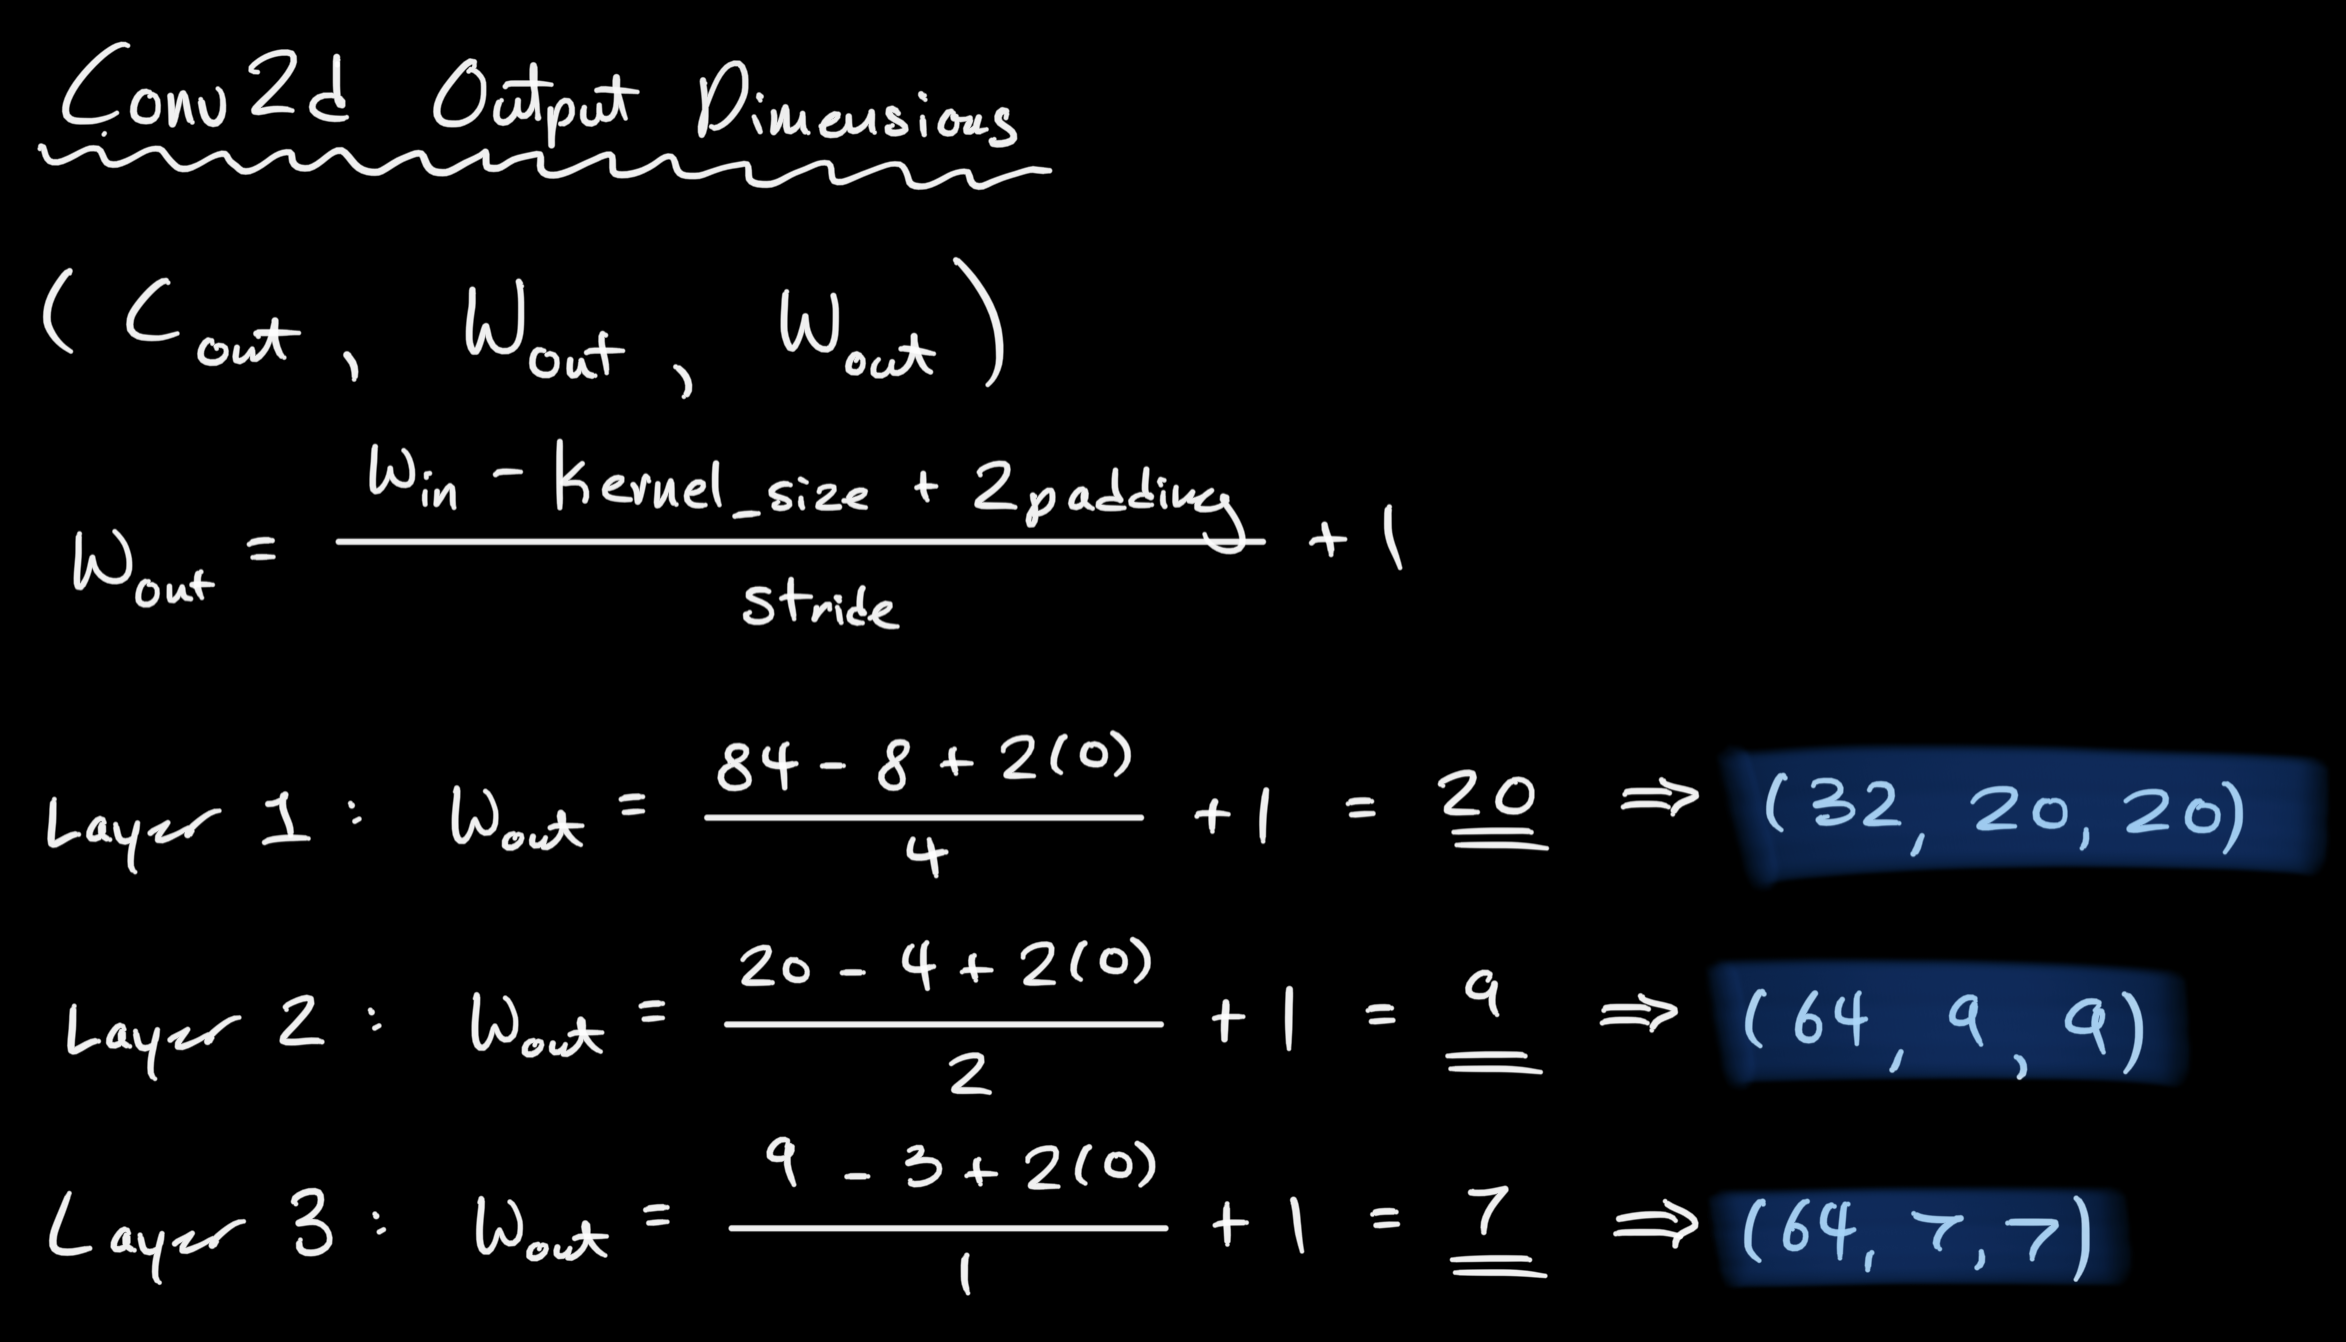 Conv2d Output Dimensions
( C_out , W_out , W_out )
W_out = (W_in - kernel_size + 2padding) / stride + 1
Layer 1 : W_out = (84 - 8 + 2(0)) / 4 + 1 = 20 ⇒ (32, 20, 20)
Layer 2 : W_out = (20 - 4 + 2(0)) / 2 + 1 = 9 ⇒ (64, 9, 9)
Layer 3 : W_out = (9 - 3 + 2(0)) / 1 + 1 = 7 ⇒ (64, 7, 7)